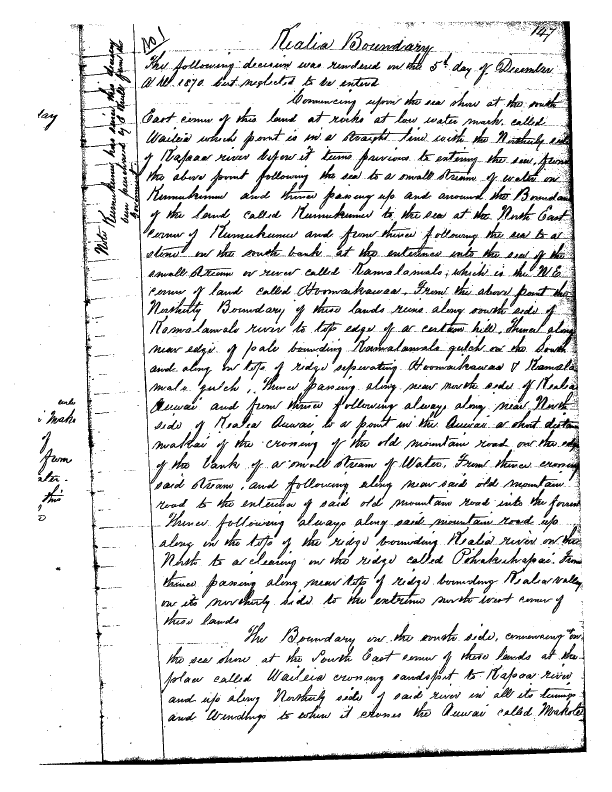 147
No 1
Kealia Boundary
The following decision was rendered on the 5th day of December
A.D. 1870. but neglected to be enterd
Comencing upon the sea shore at the south
East corner of this land at rocks at low water mark, called
Wailua which point is in a straight line with the Northerly side
of Kapaa river before it turns previous to entering the sea, from
the above point following the sea to a small stream of water on
Kumukumu and thence passing up and around the Boundary
of the land, called Kumukumu to the sea at the North East
corner of Kumukumu and from thence following the sea to a
stone on the south bank at the entrance into the sea of the
small stream or river called Kamalamalo, which is the N.E.
corner of land called Hoomaikawaa. From the above point the
Northerly Boundary of these lands runs along south side of
Kamalamalo river to top edge of a certain hill, Thence along
near edge of pale bounding Kamalamalo gulch on the South
and along on top of ridge seperating Hoomaikawaa & Kamala
malo gulch, Thence passing along near north side of Kealia
Auwai and from thence following always along near North
side of Kealia Auwai, to a point in the Auwai a short distance
makai of the crossing of the old mountain road on the edge
of the bank of a small stream of Water, From thence crossing
said stream, and following along near said old mountain
road to the entrance of said old mountain road into the forest
Thence following always along said mountain road up
along on the top of the ridge bounding Kealia river on the
North to a clearing on the ridge called Pohakuhapai. From
thence passing along near top of ridge bounding Kealia valley
on its northerly side to the extreme north west corner of
these lands
The Boundary on the south side, comencing on
the sea shore at the South East corner of these lands at the
place called Wailua crossing sandspit to Kapaa river
and up along Northerly side of said river in all its turnings
and Windings to where it crosses the Auwai called Makole
Note Kumukumu has since this decision
been purchased by from the
Government
lay
Make
of
from
this